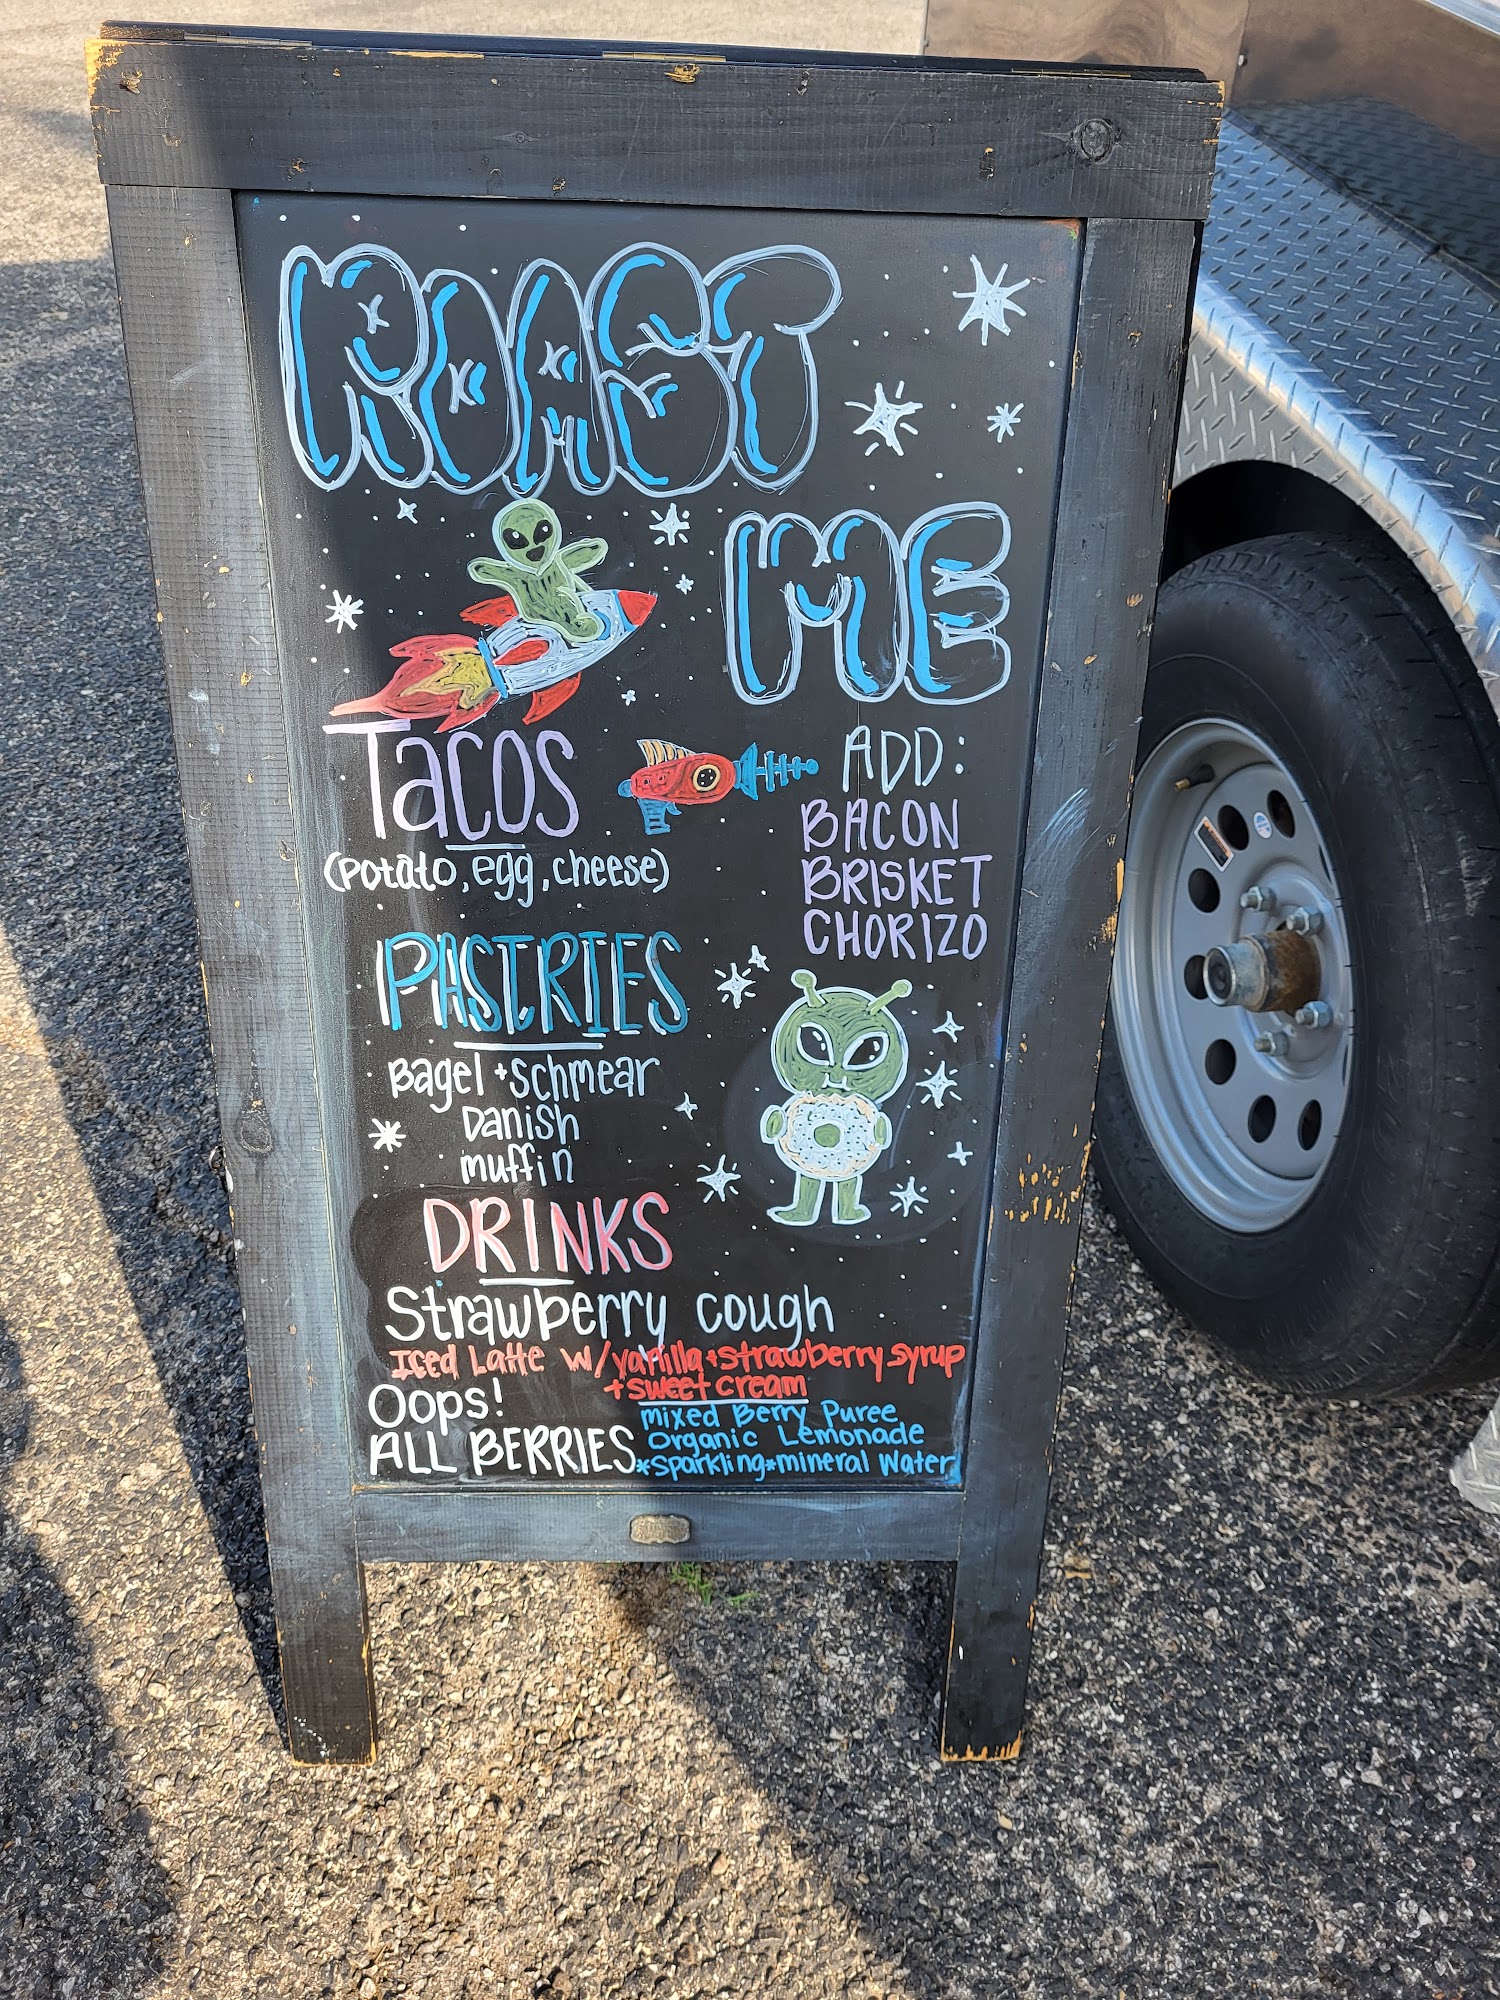 ROAST
ME
TacOS
(potato, egg, cheese)
ADD:
BACON
BRISKET
CHORIZO
PASTRIES
Bagel + schmear
Danish
muffin
DRINKS
Strawberry cough
Iced Latte w/ vanilla + strawberry syrup
+ sweet cream
Oops!
ALL BERRIES
mixed Berry Puree
Organic Lemonade
*sparkling*mineral water